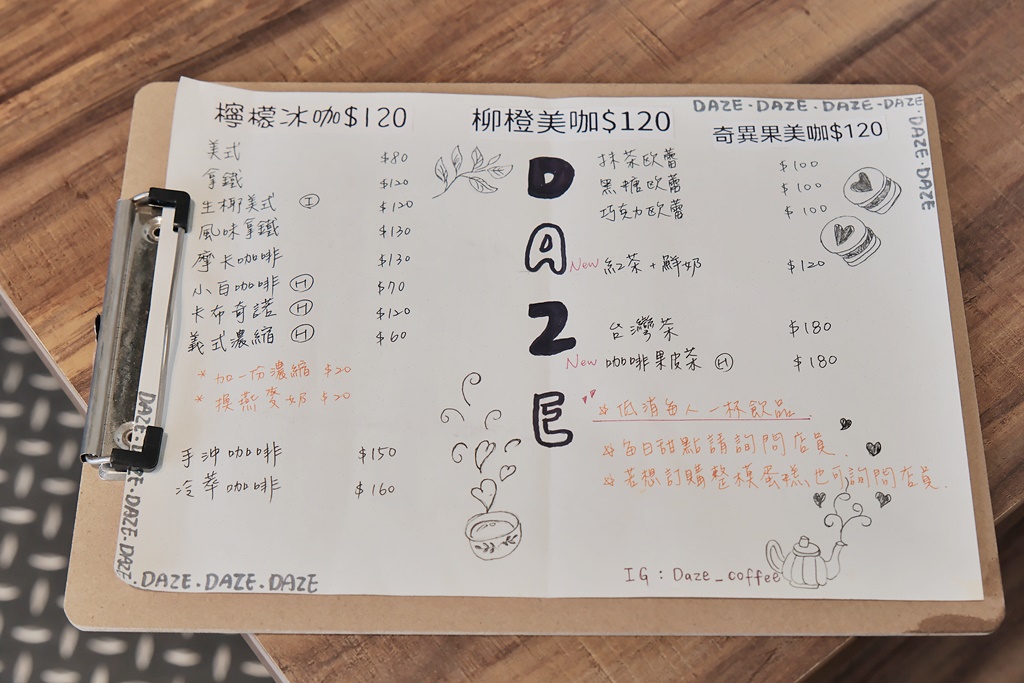 檸檬冰咖$120
美式 $80
拿鐵 $120
生椰美式 Ⓘ $120
風味拿鐵 $130
摩卡咖啡 $130
小白咖啡 Ⓗ $70
卡布奇諾 Ⓗ $120
義式濃縮 Ⓗ $60
*加一份濃縮 $20
*換燕麥奶 $20
手沖咖啡 $150
冷萃咖啡 $160
柳橙美咖$120
D
A
Z
E
DAZE·DAZE·DAZE·DAZE
DAZE·DAZE
奇異果美咖$120
抹茶歐蕾 $100
黑糖歐蕾 $100
巧克力歐蕾 $100
New 紅茶+鮮奶 $120
台灣茶 $180
New 咖啡果皮茶 Ⓗ $180
*低消每人一杯飲品
*每日甜點請詢問店員.
*若想訂購整模蛋糕,也可詢問店員.
IG:Daze_coffee
DAZE·DAZE·DAZE·DAZE
DAZE·DAZE·DAZE